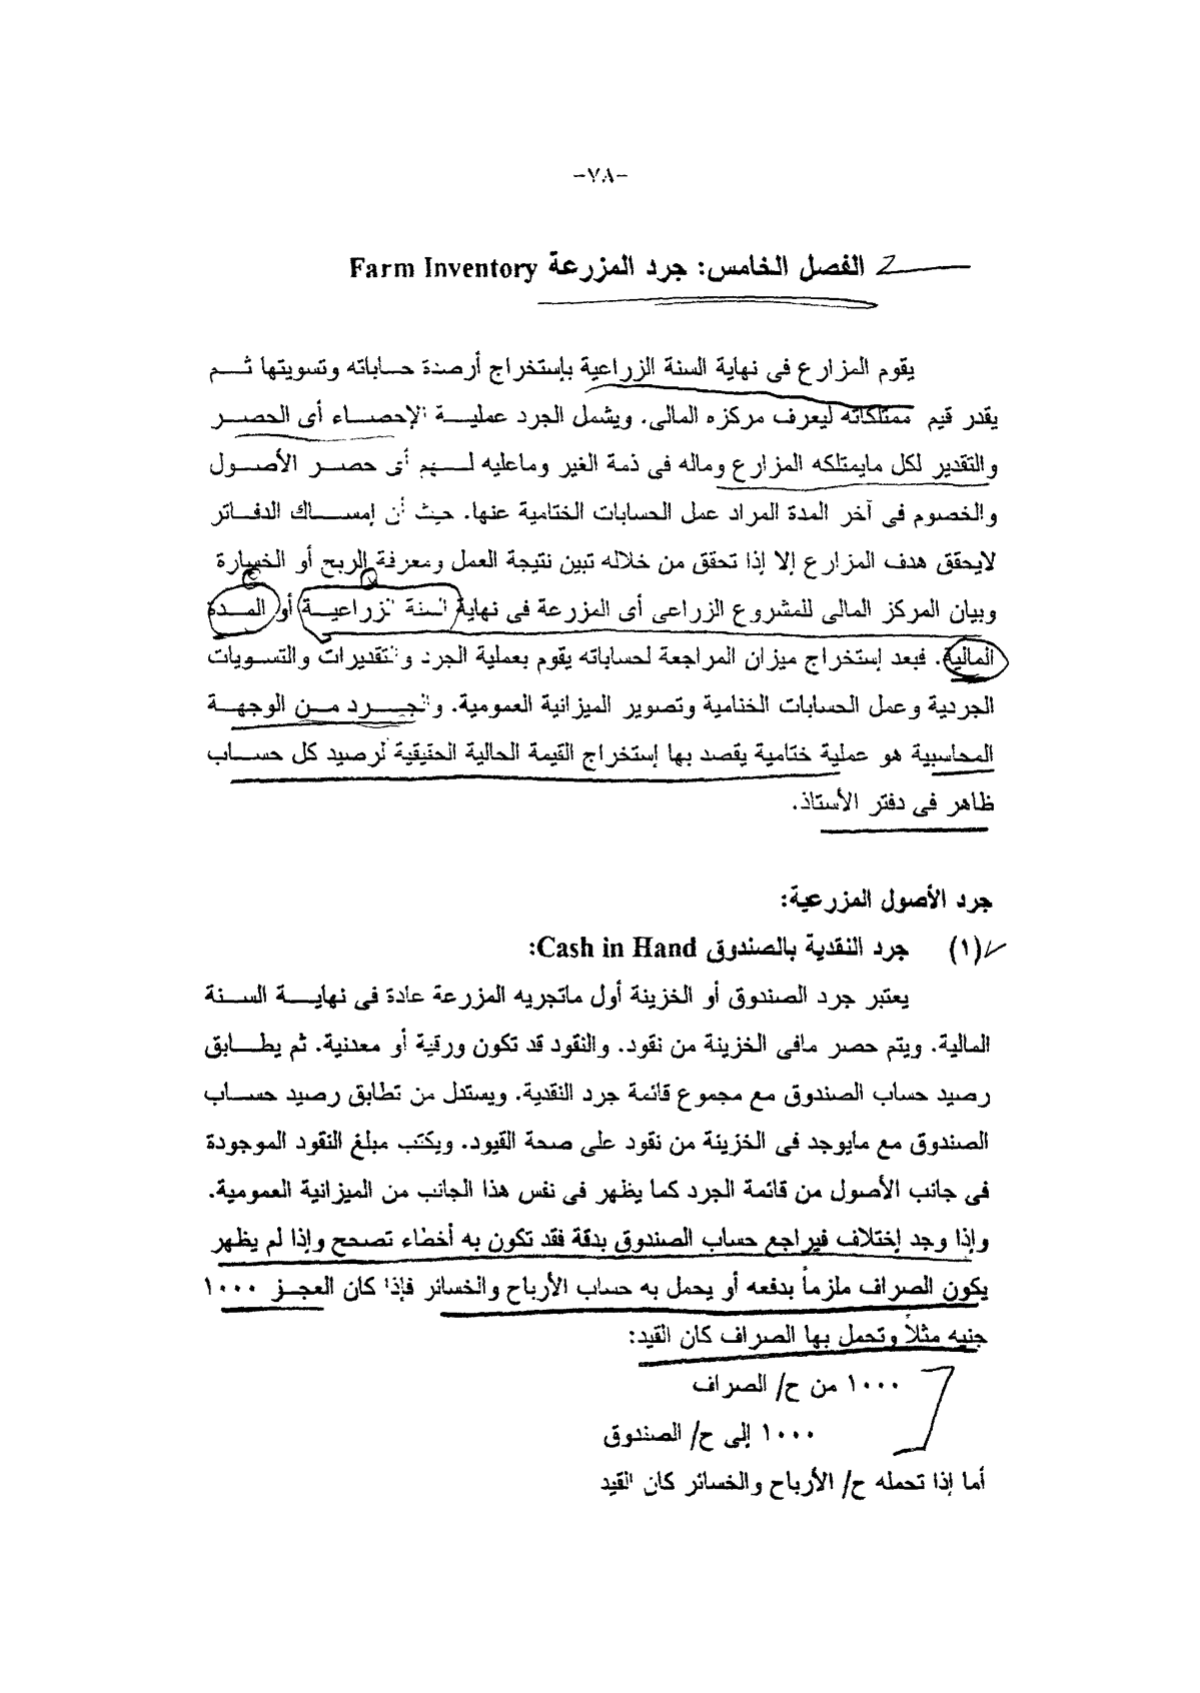 -٧٨-
الفصل الخامس: جرد المزرعة Farm Inventory
يقوم المزارع فى نهاية السنة الزراعية بإستخراج أرصدة حساباته وتسويتها ثم
يقدر قيم ممتلكاته ليعرف مركزه المالى. ويشمل الجرد عملية الإحصاء أى الحصر
والتقدير لكل مايمتلكه المزارع وماله فى ذمة الغير وماعليه لهم أى حصر الأصول
والخصوم فى آخر المدة المراد عمل الحسابات الختامية عنها. حيث أن إمساك الدفاتر
لايحقق هدف المزارع إلا إذا تحقق من خلاله تبين نتيجة العمل ومعرفة الربح أو الخسارة
وبيان المركز المالى للمشروع الزراعى أى المزرعة فى نهاية السنة الزراعية أو المدة
المالية. فبعد إستخراج ميزان المراجعة لحساباته يقوم بعملية الجرد والتقديرات والتسويات
الجردية وعمل الحسابات الختامية وتصوير الميزانية العمومية. والجرد من الوجهة
المحاسبية هو عملية ختامية يقصد بها إستخراج القيمة الحالية الحقيقية لرصيد كل حساب
ظاهر فى دفتر الأستاذ.
جرد الأصول المزرعية:
(١) جرد النقدية بالصندوق Cash in Hand:
يعتبر جرد الصندوق أو الخزينة أول ماتجريه المزرعة عادة فى نهاية السنة
المالية. ويتم حصر مافى الخزينة من نقود. والنقود قد تكون ورقية أو معدنية. ثم يطابق
رصيد حساب الصندوق مع مجموع قائمة جرد النقدية. ويستدل من تطابق رصيد حساب
الصندوق مع مايوجد فى الخزينة من نقود على صحة القيود. ويكتب مبلغ النقود الموجودة
فى جانب الأصول من قائمة الجرد كما يظهر فى نفس هذا الجانب من الميزانية العمومية.
وإذا وجد إختلاف فيراجع حساب الصندوق بدقة فقد تكون به أخطاء تصحح وإذا لم يظهر
يكون الصراف ملزماً بدفعه أو يحمل به حساب الأرباح والخسائر فإذا كان العجز ١٠٠٠
جنيه مثلاً وتحمل بها الصراف كان القيد:
١٠٠٠ من ح/ الصراف
١٠٠٠ إلى ح/ الصندوق
أما إذا تحمله ح/ الأرباح والخسائر كان القيد